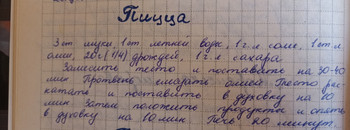 Пицца
3 ст муки, 1 ст летней воды, 1 г л соли, 1 ст л
олии, 20 г (1/4) дрождей, 1 г л сахара
Замесить тесто и поставить на 30-40
мин Протвень смазать олией Тесто рас
катать и поставить в духовку на 10
мин Затем положите продукты и опять
в духовку на 10 мин Печь 20 минут.